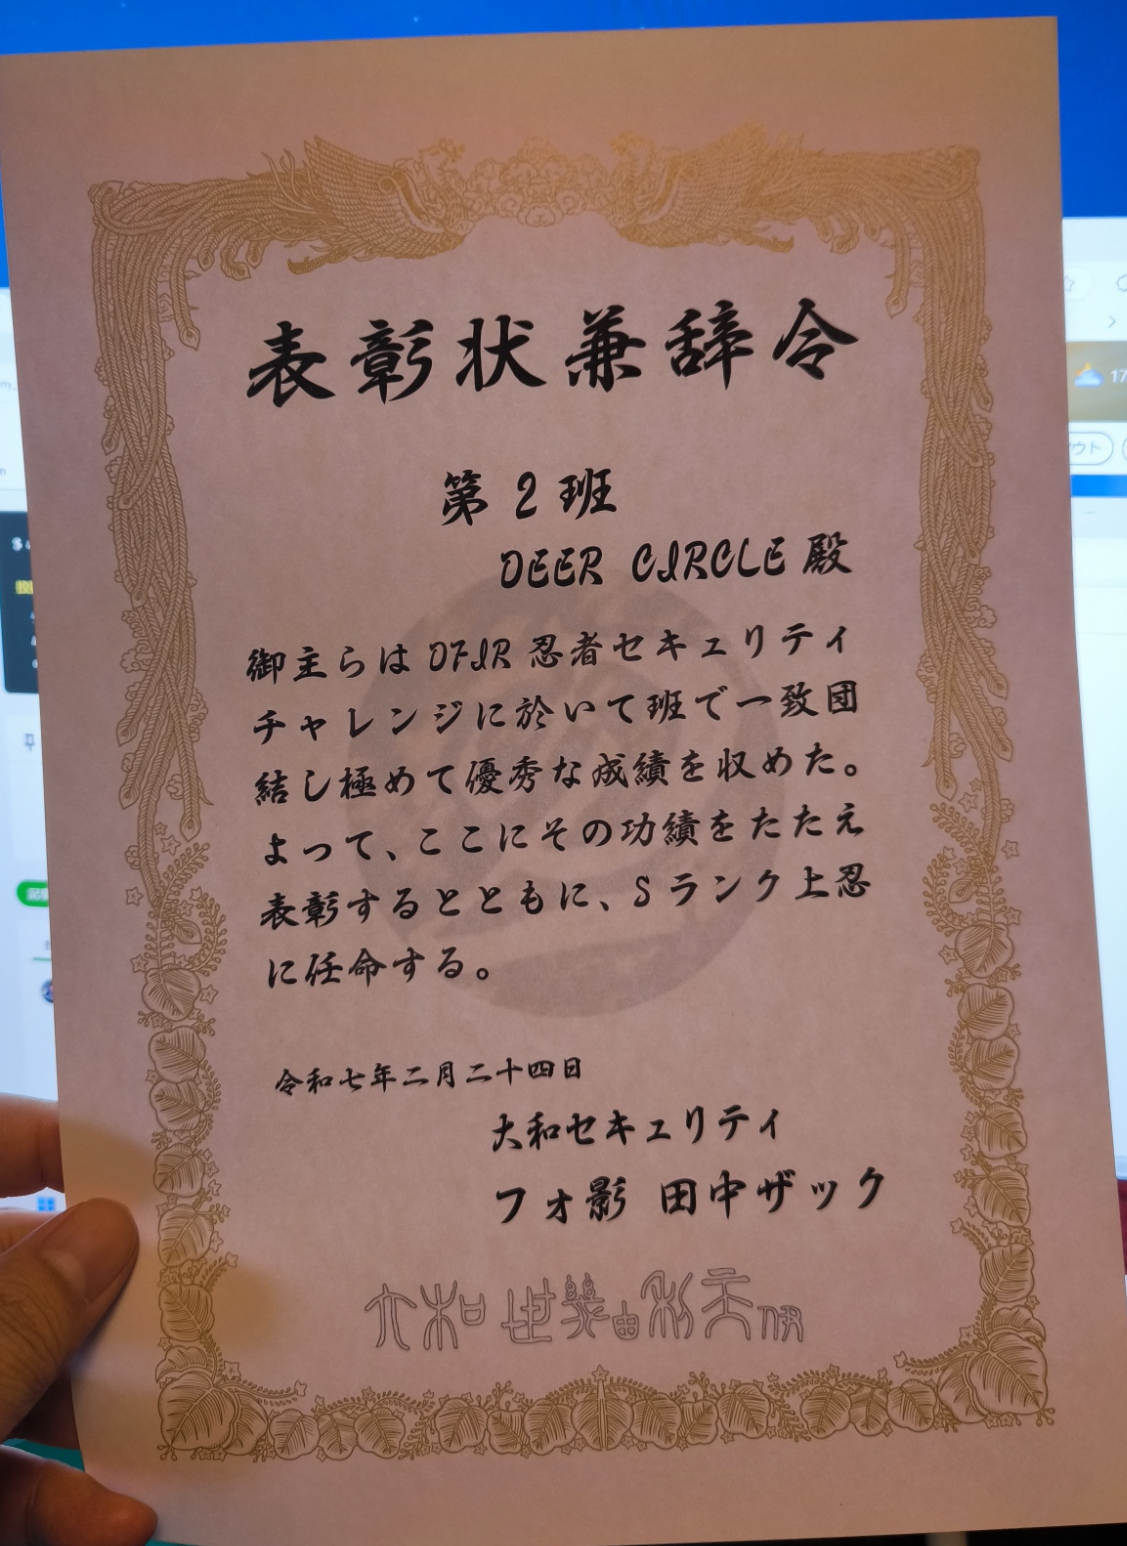 表彰状兼辞令
第2班
DEER CIRCLE 殿
御主らは DFIR 忍者セキュリティ
チャレンジに於いて班で一致団
結し極めて優秀な成績を収めた。
よって、ここにその功績をたたえ
表彰するとともに、Sランク上忍
に任命する。
令和七年二月二十四日
大和セキュリティ
フォ影 田中ザック
大和世幾由利天伊
17